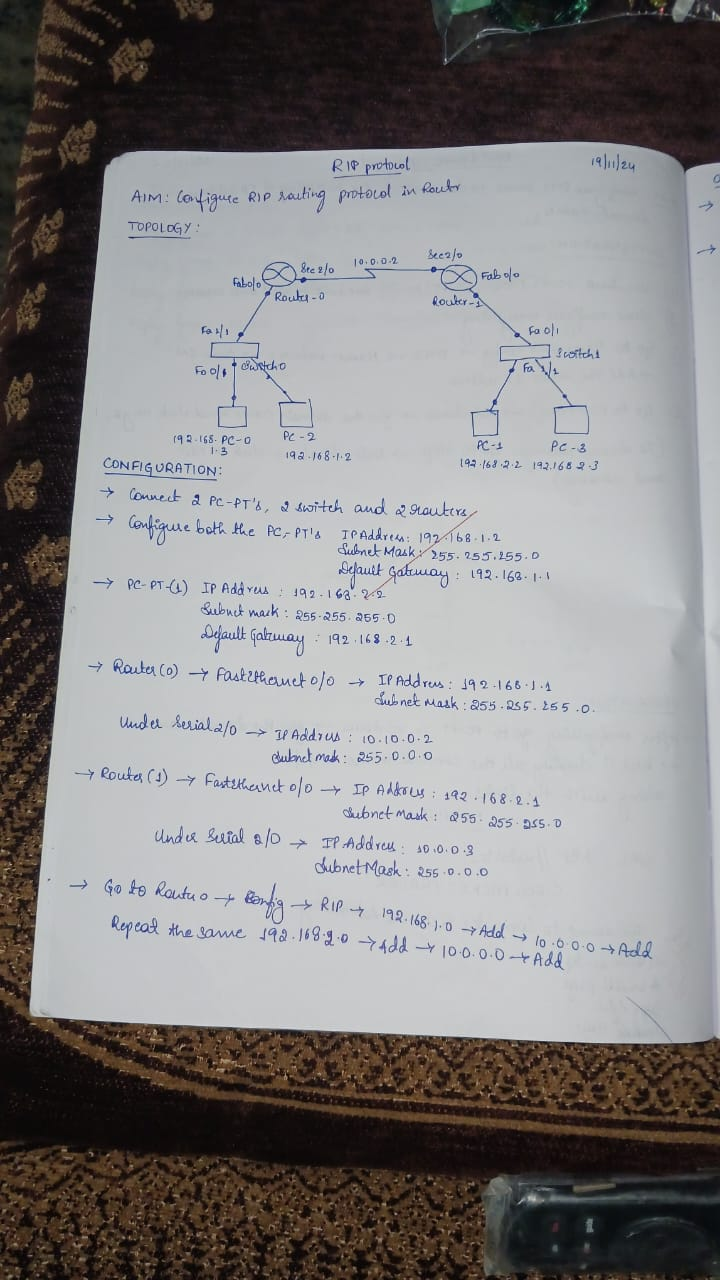 RIP protocol
19/11/24
AIM: Configure RIP routing protocol in Router
TOPOLOGY:
Fab0/0
See 2/0
10.0.0.2
See 2/0
Fab 0/0
Router-0
Router-1
Fa 1/1
Fa 0/1
Switch0
Switch1
Fa 0/1
Fa 1/1
192.168. PC-0
1.3
PC-2
192.168.1.2
PC-1
PC-3
192.168.2.2
192.168.2.3
CONFIGURATION:
→ Connect 2 PC-PT's, 2 switch and 2 routers
→ Configure both the PC-PT's IP Address: 192.168.1.2
Subnet Mask: 255.255.255.0
Default Gateway: 192.168.1.1
→ PC-PT-(1) IP Address: 192.168.2.2
Subnet mask: 255.255.255.0
Default Gateway: 192.168.2.1
→ Router(0) → FastEthernet 0/0 → IP Address: 192.168.1.1
Subnet Mask: 255.255.255.0.
Under Serial 2/0 → IP Address: 10.10.0.2
Subnet mask: 255.0.0.0
→ Router (1) → FastEthernet 0/0 → IP Address: 192.168.2.1
Subnet Mask: 255.255.255.0
Under Serial 2/0 → IP Address: 10.0.0.3
Subnet Mask: 255.0.0.0
→ Go to Router 0 → Config → RIP → 192.168.1.0 → Add → 10.0.0.0 → Add
Repeat the same 192.168.2.0 → Add → 10.0.0.0 → Add